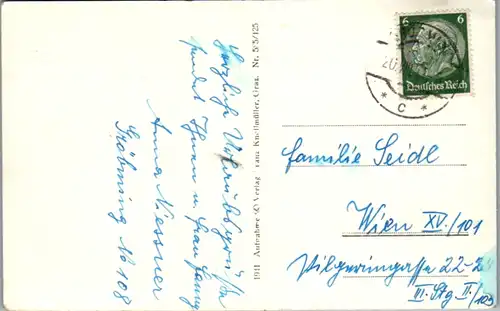 Herzliche Urlaubsgrüße
sendet Ihnen u. Frau Fanny
Anna Niessner
Gröbming No 108
1941 Aufnahme u. Verlag Franz Knollmüller, Graz. Nr. 5/5/125
6 6
Deutsches Reich
* c *
Familie Seidl
Wien XV./101
Pilgerimgasse 22-24
III. Stg II./103